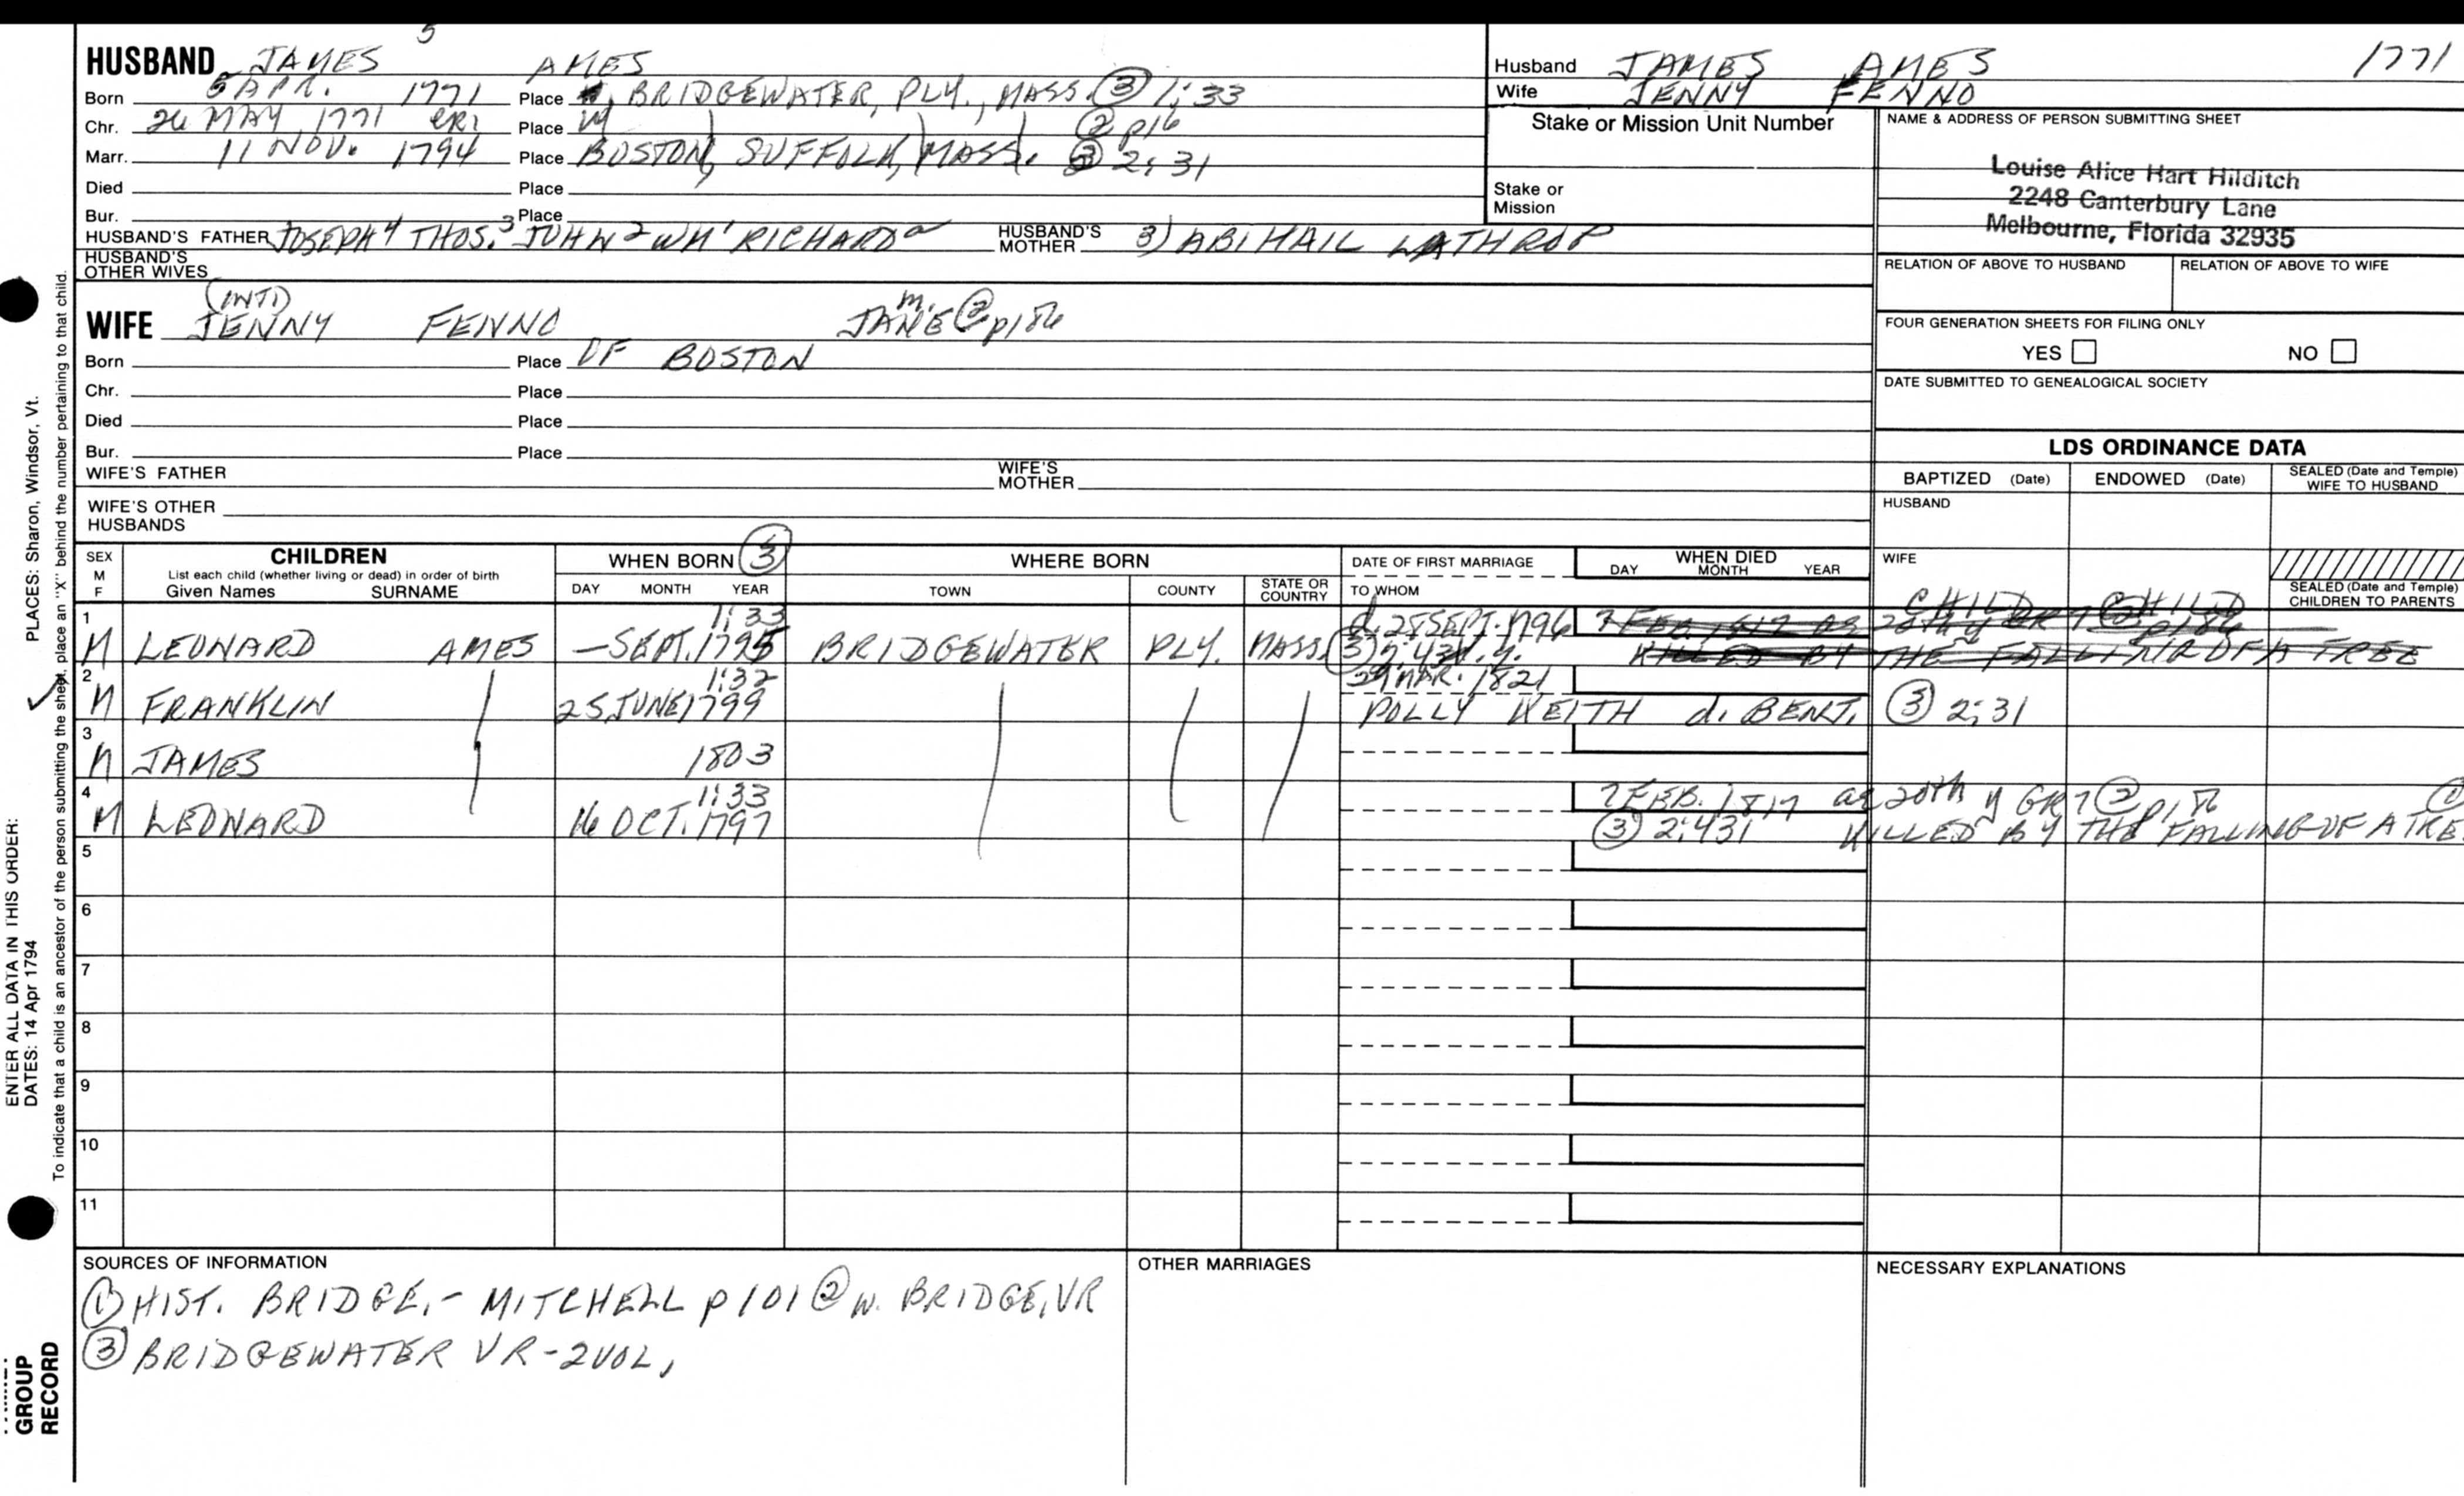 5
HUSBAND JAMES AMES
Born 5 APR. 1771 Place BRIDGEWATER, PLY., MASS. ③ 1:33
Chr. 26 MAY 1771 CR1 Place W ② p16
Marr. 11 NOV. 1794 Place BOSTON, SUFFOLK, MASS. ③ 2:31
Died Place
Bur. Place
HUSBAND'S FATHER JOSEPH4 THOS.3 JOHN2 WM1 RICHARDa HUSBAND'S MOTHER 3) ABIHAIL LATHROP
HUSBAND'S OTHER WIVES
Husband JAMES AMES 1771
Wife JENNY FENNO
Stake or Mission Unit Number
Stake or Mission
NAME & ADDRESS OF PERSON SUBMITTING SHEET
Louise Alice Hart Hilditch
2248 Canterbury Lane
Melbourne, Florida 32935
RELATION OF ABOVE TO HUSBAND RELATION OF ABOVE TO WIFE
FOUR GENERATION SHEETS FOR FILING ONLY
YES NO
DATE SUBMITTED TO GENEALOGICAL SOCIETY
(INT) m.
WIFE JENNY FENNO JANE ② p186
Born Place OF BOSTON
Chr. Place
Died Place
Bur. Place
WIFE'S FATHER WIFE'S MOTHER
WIFE'S OTHER HUSBANDS
LDS ORDINANCE DATA
BAPTIZED (Date) ENDOWED (Date) SEALED (Date and Temple) WIFE TO HUSBAND
HUSBAND
WIFE
SEALED (Date and Temple) CHILDREN TO PARENTS
SEX M F CHILDREN WHEN BORN ③ WHERE BORN DATE OF FIRST MARRIAGE WHEN DIED
List each child (whether living or dead) in order of birth
Given Names SURNAME DAY MONTH YEAR TOWN COUNTY STATE OR COUNTRY TO WHOM DAY MONTH YEAR
1 1:33 d. 28 SEPT. 1796 7 FEB. 1817 CHILD CHILD
M LEONARD AMES — SEPT. 1795 BRIDGEWATER PLY. MASS. ③ 2:431 KILLED BY THE FALLING OF A TREE
2 1:32 29 MAR. 1821
M FRANKLIN 25 JUNE 1799 POLLY KEITH d. BENJ. ③ 2:31
3
M JAMES 1803
4 1:33 7 FEB. 1817 ae 20th y GR7 ② p186
M LEONARD 16 OCT. 1797 ③ 2:431 KILLED BY THE FALLING OF A TREE
5
6
7
8
9
10
11
SOURCES OF INFORMATION
① HIST. BRIDGE. - MITCHELL p101 ② W. BRIDGE. VR
③ BRIDGEWATER VR - 2 VOL.
OTHER MARRIAGES
NECESSARY EXPLANATIONS
ENTER ALL DATA IN THIS ORDER:
DATES: 14 Apr 1794 PLACES: Sharon, Windsor, Vt.
To indicate that a child is an ancestor of the person submitting the sheet, place an "X" behind the number pertaining to that child.
GROUP
RECORD